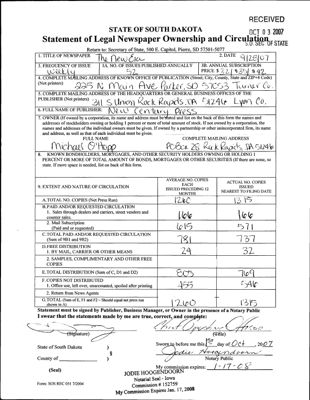 RECEIVED
OCT 03 2007
S.D. SEC. OF STATE
STATE OF SOUTH DAKOTA
Statement of Legal Newspaper Ownership and Circulation
Return to: Secretary of State, 500 E. Capitol, Pierre, SD 57501-5077
1. TITLE OF NEWSPAPER The New Era
2. DATE 9/28/07
3. FREQUENCY OF ISSUE Weekly
3A. NO. OF ISSUES PUBLISHED ANNUALLY 52
3B. ANNUAL SUBSCRIPTION PRICE $
4. COMPLETE MAILING ADDRESS OF KNOWN OFFICE OF PUBLICATION (Street, City, County, State and ZIP+4 Code) (Not printers)
225 N Main Ave Parker, SD 57053 Turner Co.
5. COMPLETE MAILING ADDRESS OF THE HEADQUARTERS OF GENERAL BUSINESS OFFICES OF THE PUBLISHER (Not printers)
311 S Union, Rock Rapids, IA 51246 Lyon Co.
6. FULL NAME OF PUBLISHER: New Century Press
7. OWNER (If owned by a corporation, its name and address must be stated and list on the back of this form the names and addresses of stockholders owning or holding 1 percent or more of total amount of stock. If not owned by a corporation, the names and addresses of the individual owners must be given. If owned by a partnership or other unincorporated firm, its name and address, as well as that of each individual must be given.
FULL NAME COMPLETE MAILING ADDRESS
PO Box 28 Rock Rapids, IA 51246
8. KNOWN BONDHOLDERS, MORTGAGEES, AND OTHER SECURITY HOLDERS OWNING OR HOLDING 1 PERCENT OR MORE OF TOTAL AMOUNT OF BONDS, MORTGAGES OR OTHER SECURITIES (If there are none, so state. If more space is needed, list on back of this form.
9. EXTENT AND NATURE OF CIRCULATION
AVERAGE NO. COPIES EACH ISSUED PRECEDING 12 MONTHS
ACTUAL NO. COPIES ISSUED NEAREST TO FILING DATE
A. TOTAL NO. COPIES (Net Press Run) 1260 1315
B. PAID AND/OR REQUESTED CIRCULATION
1. Sales through dealers and carriers, street vendors and counter sales. 166 166
2. Mail Subscription (Paid and or requested) 615 571
C. TOTAL PAID AND/OR REQUESTED CIRCULATION (Sum of 9B1 and 9B2) 781 737
D. FREE DISTRIBUTION
1. BY MAIL, CARRIER OR OTHER MEANS 24 32
2. SAMPLES, COMPLIMENTARY AND OTHER FREE COPIES
E. TOTAL DISTRIBUTION (Sum of C, D1 and D2) 805 769
F. COPIES NOT DISTRIBUTED
1. Office use, left over, unaccounted, spoiled after printing 455 546
2. Return from News Agents
G. TOTAL (Sum of E, F1 and F2 - Should equal net press run shown in A) 1260 1315
Statement must be signed by Publisher, Business Manager, or Owner in the presence of a Notary Public
I swear that the statements made by me are true, correct, and complete:
(Signature) (Title)
State of South Dakota )
) §
County of )
Sworn to before me this 1st day of Oct, 2007
Jodie Hoogendoorn
Notary Public
(Seal)
My commission expires: 1-17-08
JODIE HOOGENDOORN
Notarial Seal - Iowa
Commission # 152759
My Commission Expires Jan. 17, 2008